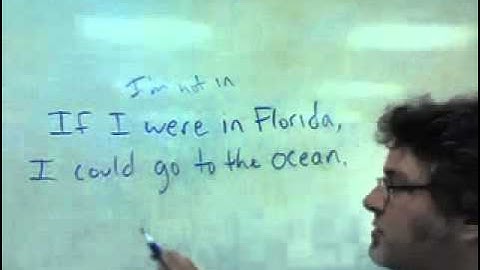 I'm not in
If I were in Florida,
I could go to the ocean.